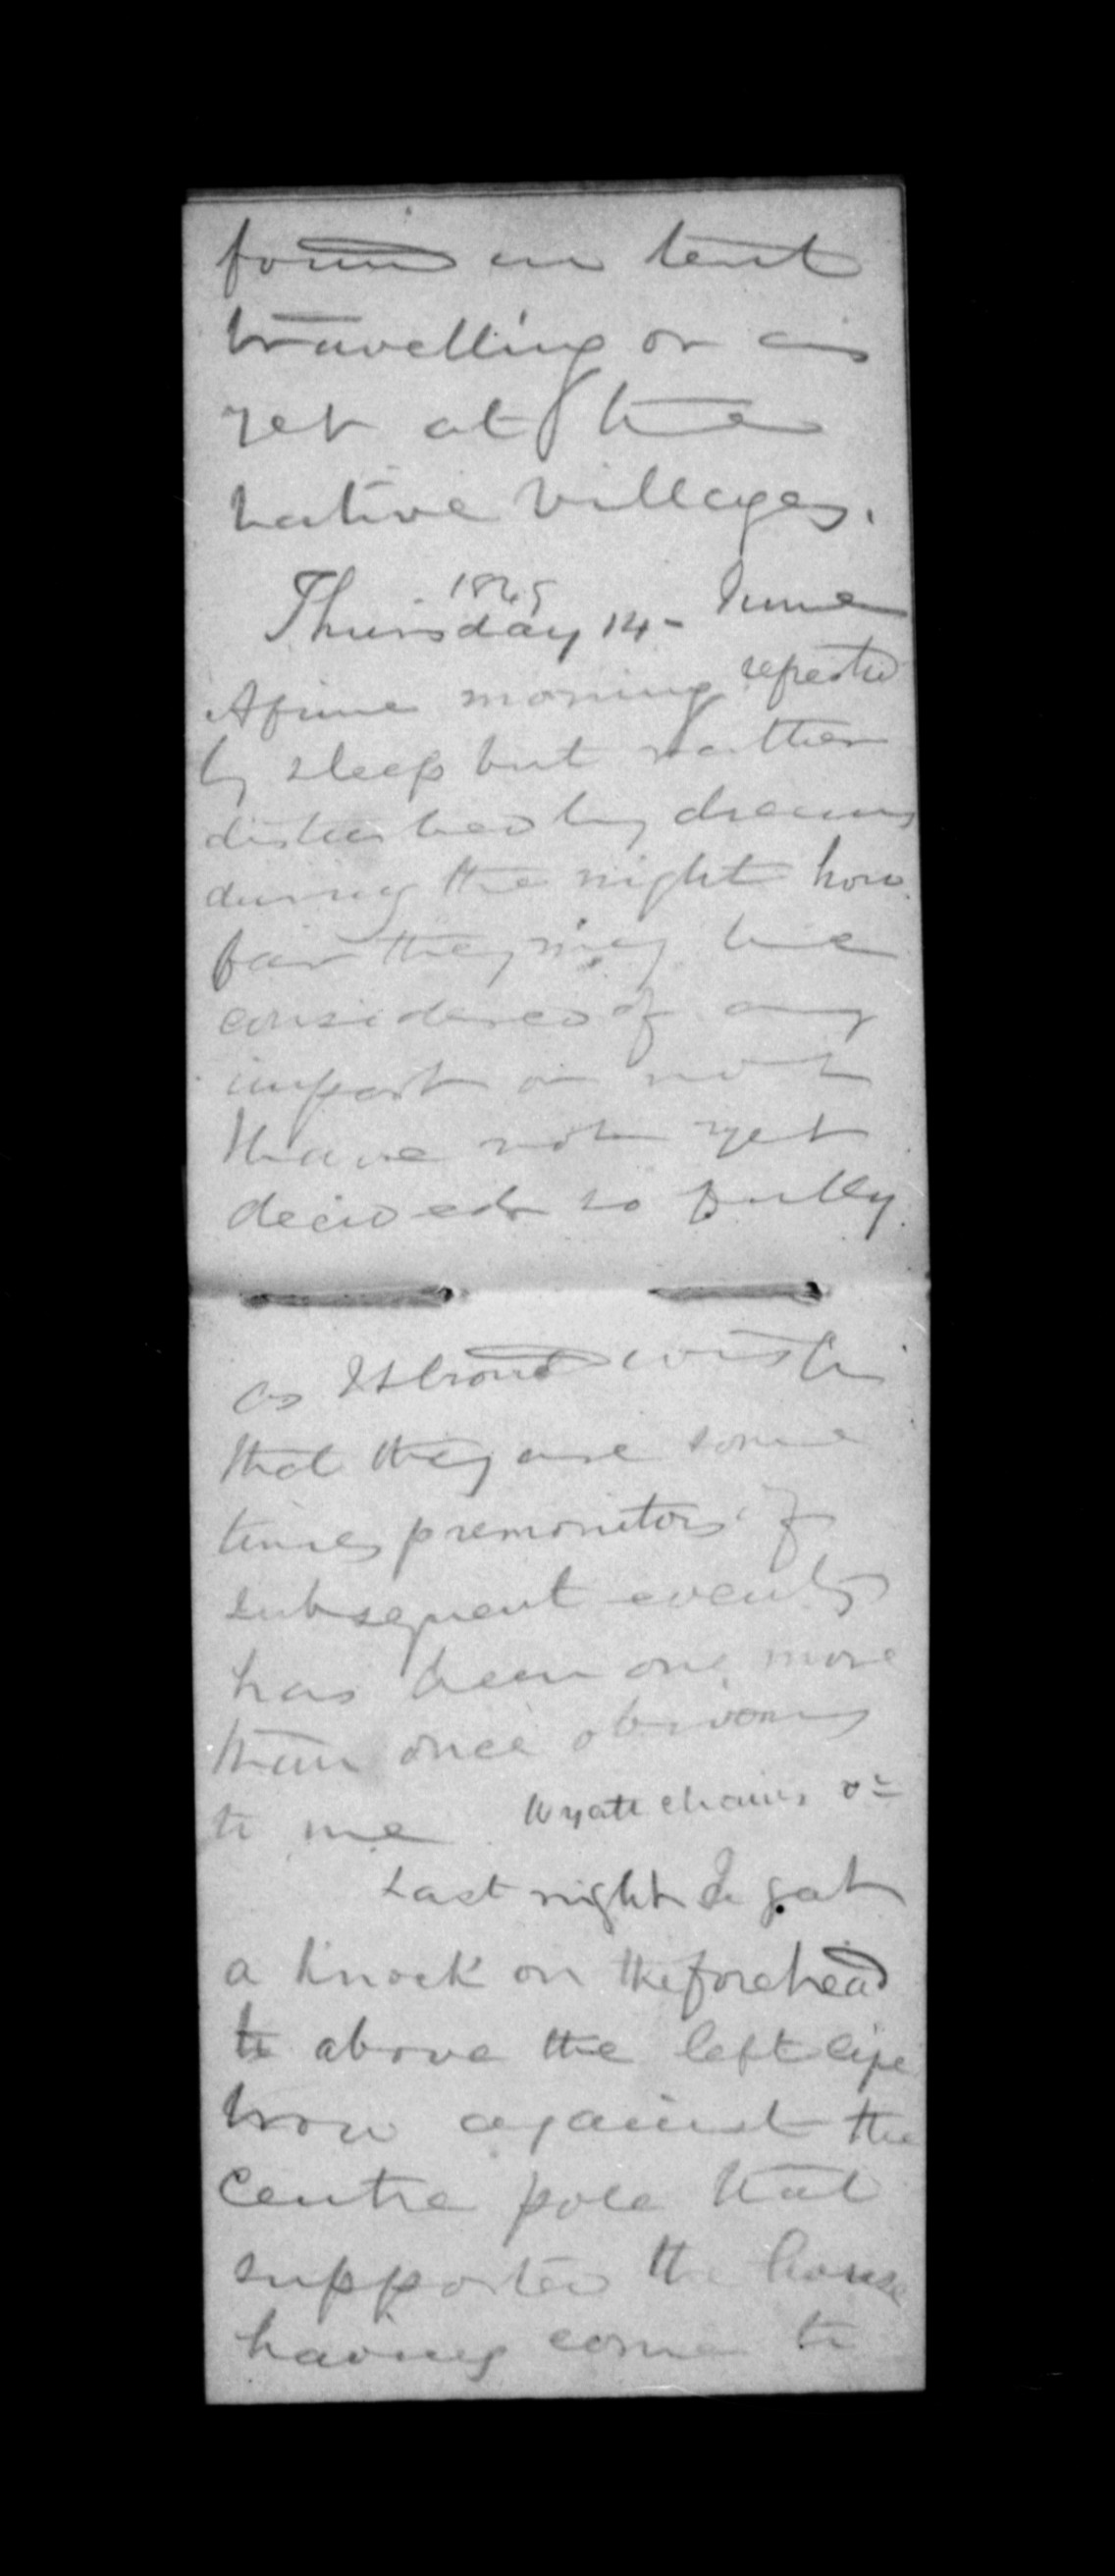 found in tent
travelling or as
yet at the
native villages.
1865
Thursday 14 - June
A fine morning refreshed
by sleep but rather
disturbed by dreams
during the night how
far they may be
considered of any
import or not
I have not yet
decided so fully
as I should wish
that they are some
times premonitors of
subsequent events
has been one more
than once obvious
to me Wyatt chains &c
Last night I got
a knock on the forehead
to above the left eye
brow against the
centre pole that
supported the house
having come to